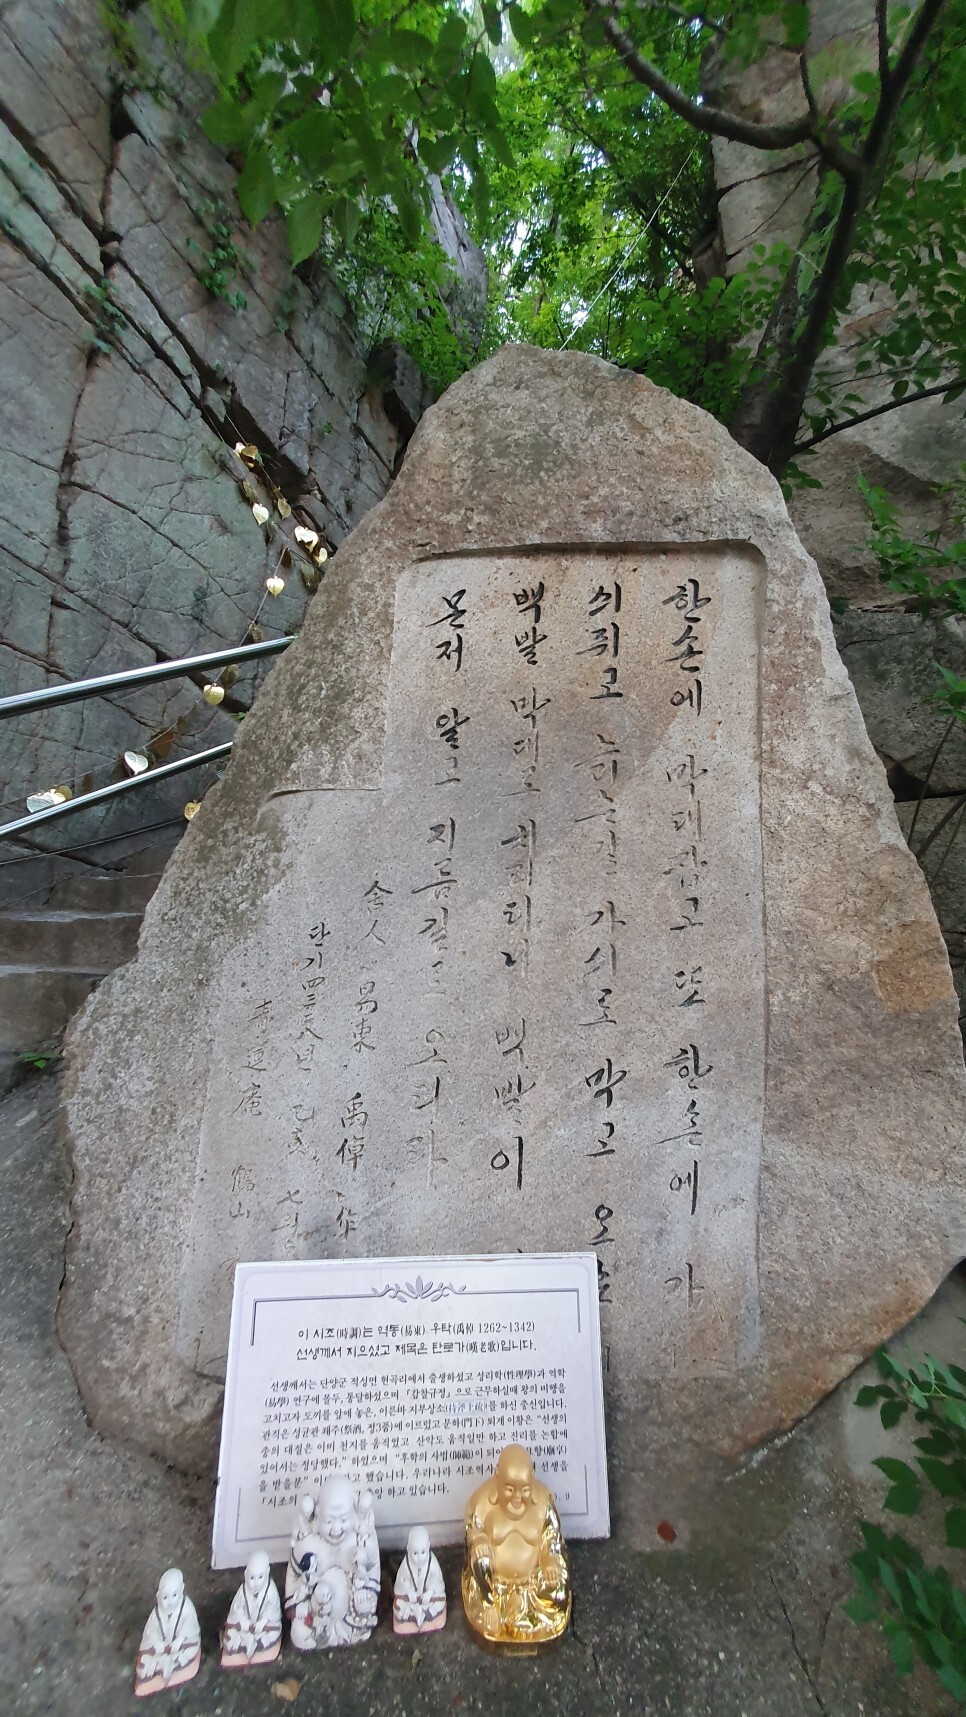 한손에 막대잡고 또 한손에 가
싀쥐고 늙는길 가싀로 막고 오
백발 막대로 치려터니 백발이
몬저 알고 지름길로 오더라
舍人 易東 禹倬 作
단기四三二八년 乙亥 七월
靑蓮庵 鶴山
이 시조(時調)는 역동(易東) 우탁(禹倬 1262~1342)
선생께서 지으셨고 제목은 탄로가(嘆老歌)입니다.
선생께서는 단양군 적성면 현곡리에서 출생하셨고 성리학(性理學)과 역학
(易學) 연구에 몰두, 통달하셨으며 「감찰규정」으로 근무하실때 왕의 비행을
고치고자 도끼를 앞에 놓은, 이른바 지부상소(持斧上疏)를 하신 충신입니다.
관직은 성균관 좨주(祭酒, 정3품)에 이르렀고 문하(門下) 퇴계 이황은 "선생의
충의 대절은 이미 천지를 움직였고 산악도 움직일만 하고 진리를 논함에
있어서는 정당했다." 하였으며 "후학의 사범(師範)이 되어 향(廟享)
을 받을분" 이 고 했습니다. 우리나라 시조역사 선생을
「시조의 앙 하고 있습니다.